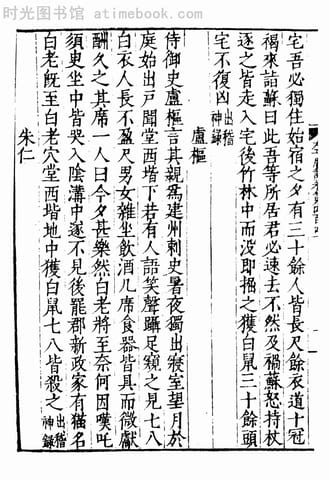 时光图书馆 - www.atimebook.com
宅吾必獨住始宿之夕有三十餘人皆長尺餘衣道士冠
褐來詣蘇曰此吾等所居君必速去不然及禍蘇怒持杖
逐之皆走入宅後竹林中而沒即掘之獲白鼠三十餘頭
宅不復凶出稽神錄
盧樞
侍御史盧樞言其親爲建州刺史暑夜獨出寢室望月於
庭始出戸聞堂西堦下若有人語笑聲躡足窺之見七八
白衣人長不盈尺男女雜坐飲酒几席食器皆具而微獻
酬久之其席一人曰今夕甚樂然白老將至奈何因嘆吒
須臾坐中皆哭入陰溝中遂不見後罷郡新政家有猫名
白老既至白老穴堂西堦地中獲白鼠七八皆殺之出稽神錄
朱仁